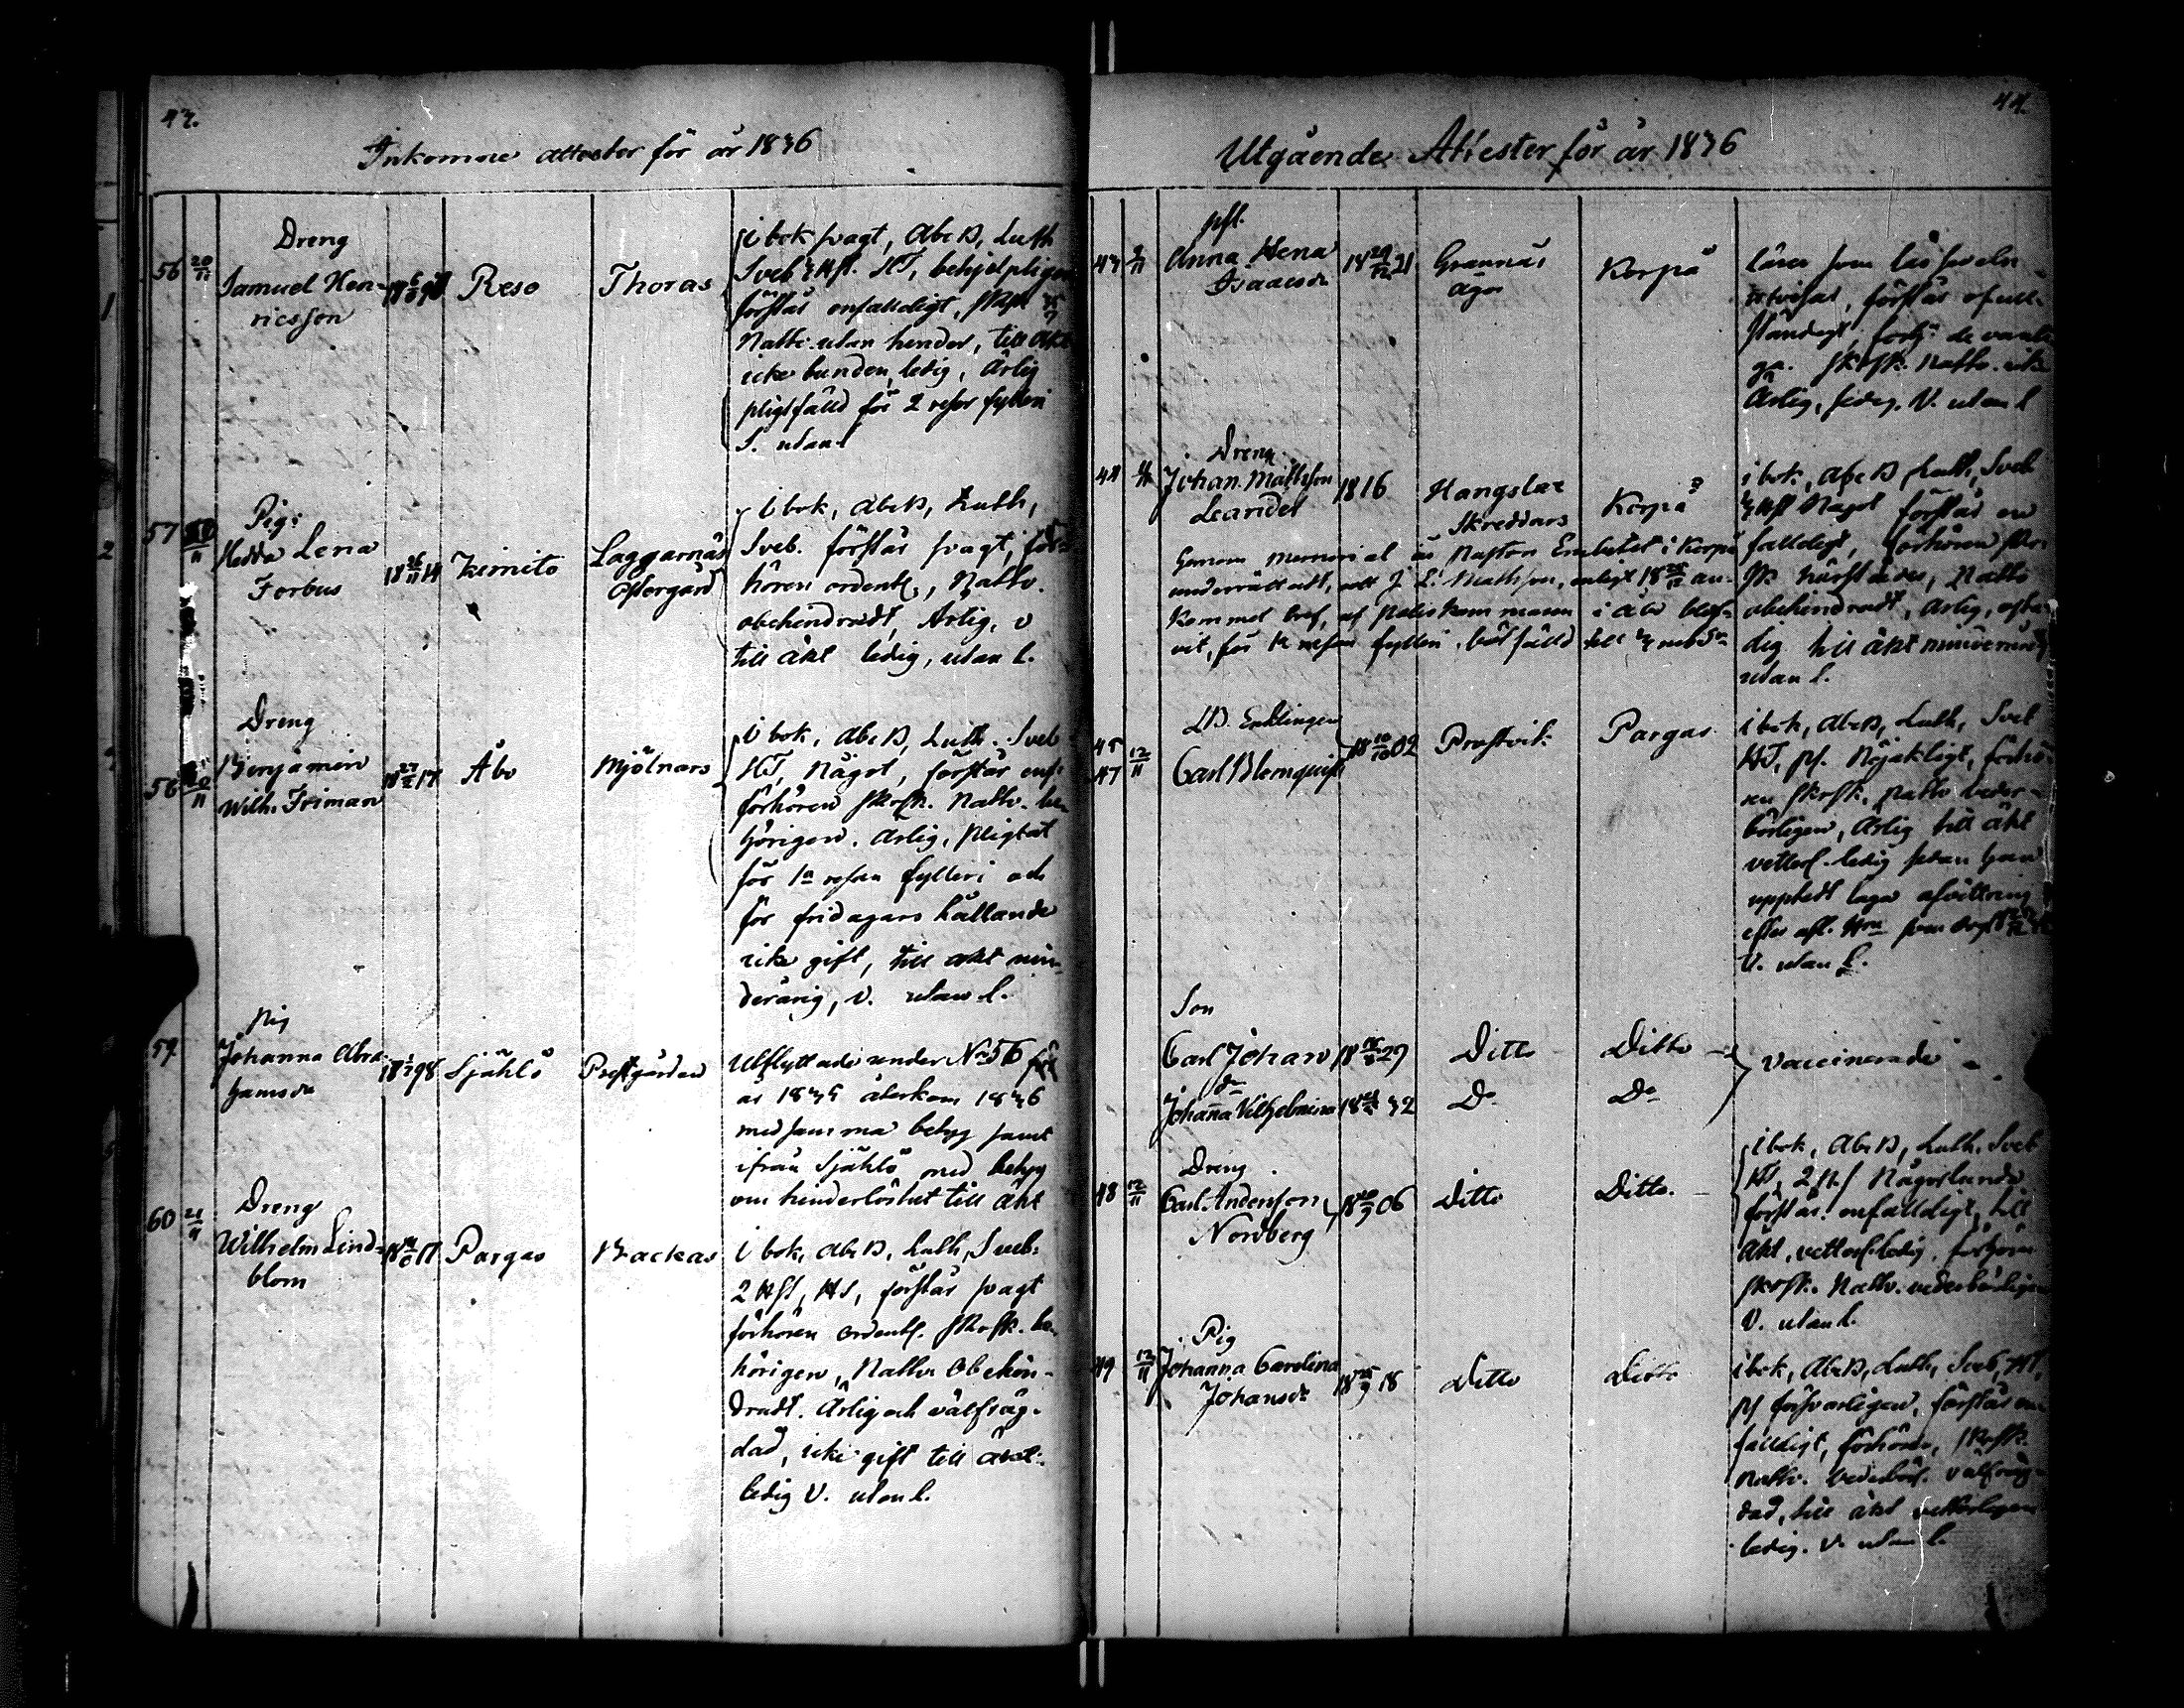 43.
Inkomne attester för år 1836
56 20/11
Dreng
Samuel Hen-
ricsson
Reso
Thoras
I bok svagt, Abc B, Luth
Sveb 3 Hfl. HT, behjelpligen
förstår enfaldigt,
Nattv. utan hinder, till äkt
icke bunden, ledig, Ärlig
pligtfälld för 2 resor fylleri
S. utan l
57
Pig:
Hedda Lena
Forbus
Kimito
Laggarnäs
Östergård
I bok, Abc B, Luth,
Sveb. förstår svagt, för-
hören ordentl., Nattv.
obehindradt, Ärlig, v
till äkt ledig, utan l.
Dreng
Benjamin
Wilh. Friman
18 27/ 17
Åbo
Mjölnars
I bok, Abc B, Luth. Sveb
HT, Något, förstår enf.
förhören skrsk. Nattv. be-
hörigen. Ärlig, Pligtat
för 1a resan fylleri och
för fridagars hållande
icke gift, till äkt min-
derårig, v. utan l.
59
Pig
Johanna Abra-
hamsdr
Själö
Prestgården
Utflyttade under No 56 för
år 1835 återkom 1836
med samma betyg samt
ifrån Själö med betyg
om hinderlöshet till äkt
60 21/11
Dreng
Wilhelm Lind-
blom
Pargas
Backas
I bok, Abc B, Luth, Sveb.
2 Hfl, HT, förstår svagt
förhören ordentl. skrsk. be-
hörigen, Nattv. Obehin-
dradt. Ärlig och välfräg-
dad, icke gift till äkt
ledig V. utan l.
44.
Utgående Attester för år 1836
43
Anna Lena
Isaacsdr
Grannäs
ägor
Korpo
förstår ofull-
ständigt, förhj. de vanli-
ga. skrsk. Nattv. icke
Ärlig, ledig. V. utan l
44
Dreng
Johan Mattsson
Leander
1816
Hangslax
Skreddars
Korpo
i bok, Abc B, Luth, Sveb
3 Hfl Något förstår en-
faldigt, förhören skr-
sk härstädes, Nattv
obehindradt, Ärlig,
dig till äkt minderårig
utan l.
Genom Memorial är Pastors Embetet i Korpo
underrättadt, att J. L. Mattsson, enligt an-
kommet bref, af Poliskammaren i Åbo blef-
vit, för resan fylleri, bötfälld
47 12/11
Enklingen
Carl Blomquist
18 10/10 02
Prostvik
Pargas
i bok, Abc B, Luth, Sveb
HT, Nöjaktigt, förhö-
ren skrsk. Nattv veder-
börligen, Ärlig till äkt
vetterl. ledig sedan han
upptedt laga afvittring
efter afl. Hru
V. utan l.
Son
Carl Johan
Ditto
Ditto
Vaccinerade
dr
Johanna Vilhelmina
Do
Do
48 12/11
Dreng
Carl Andersson
Nordberg
18 /9 06
Ditto
Ditto.
I bok, Abc B, Luth. Sveb
HT, 2 Någorlunda
förstår enfaldigt, till
äkt, vetterl. ledig. förhören
skrsk. Nattv. vederbörligen
V. utan l.
49 12/11
Pig
Johanna Carolina
Johansdr
18 /9 18
Ditto
Ditto
i bok, Abc B, Luth, Sveb, HT,
försvarligen, förstår en-
faldigt, förhören, skrsk.
Nattv. vederbörl. välfräg-
dad, till äkt vetterligen
ledig. V. utan l.